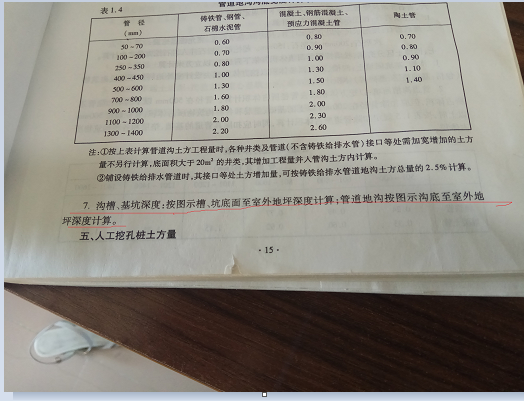 表1.4
管 径 铸铁管、钢管、 混凝土、钢筋混凝土、 陶土管
(mm) 石棉水泥管 预应力混凝土管
50~70 0.60 0.80 0.70
100~200 0.70 0.90 0.80
250~350 0.80 1.00 0.90
400~450 1.00 1.30 1.10
500~600 1.30 1.50 1.40
700~800 1.60 1.80
900~1000 1.80 2.00
1100~1200 2.00 2.30
1300~1400 2.20 2.60
注:①按上表计算管道沟土方工程量时,各种井类及管道(不含铸铁给排水管)接口等处需加宽增加的土方
量不另行计算,底面积大于20m²的井类,其增加工程量并入管沟土方内计算。
②铺设铸铁给排水管道时,其接口等处土方增加量,可按铸铁给排水管道地沟土方总量的2.5%计算。
7. 沟槽、基坑深度:按图示槽、坑底面至室外地坪深度计算;管道地沟按图示沟底至室外地
坪深度计算。
五、人工挖孔桩土方量
·15·